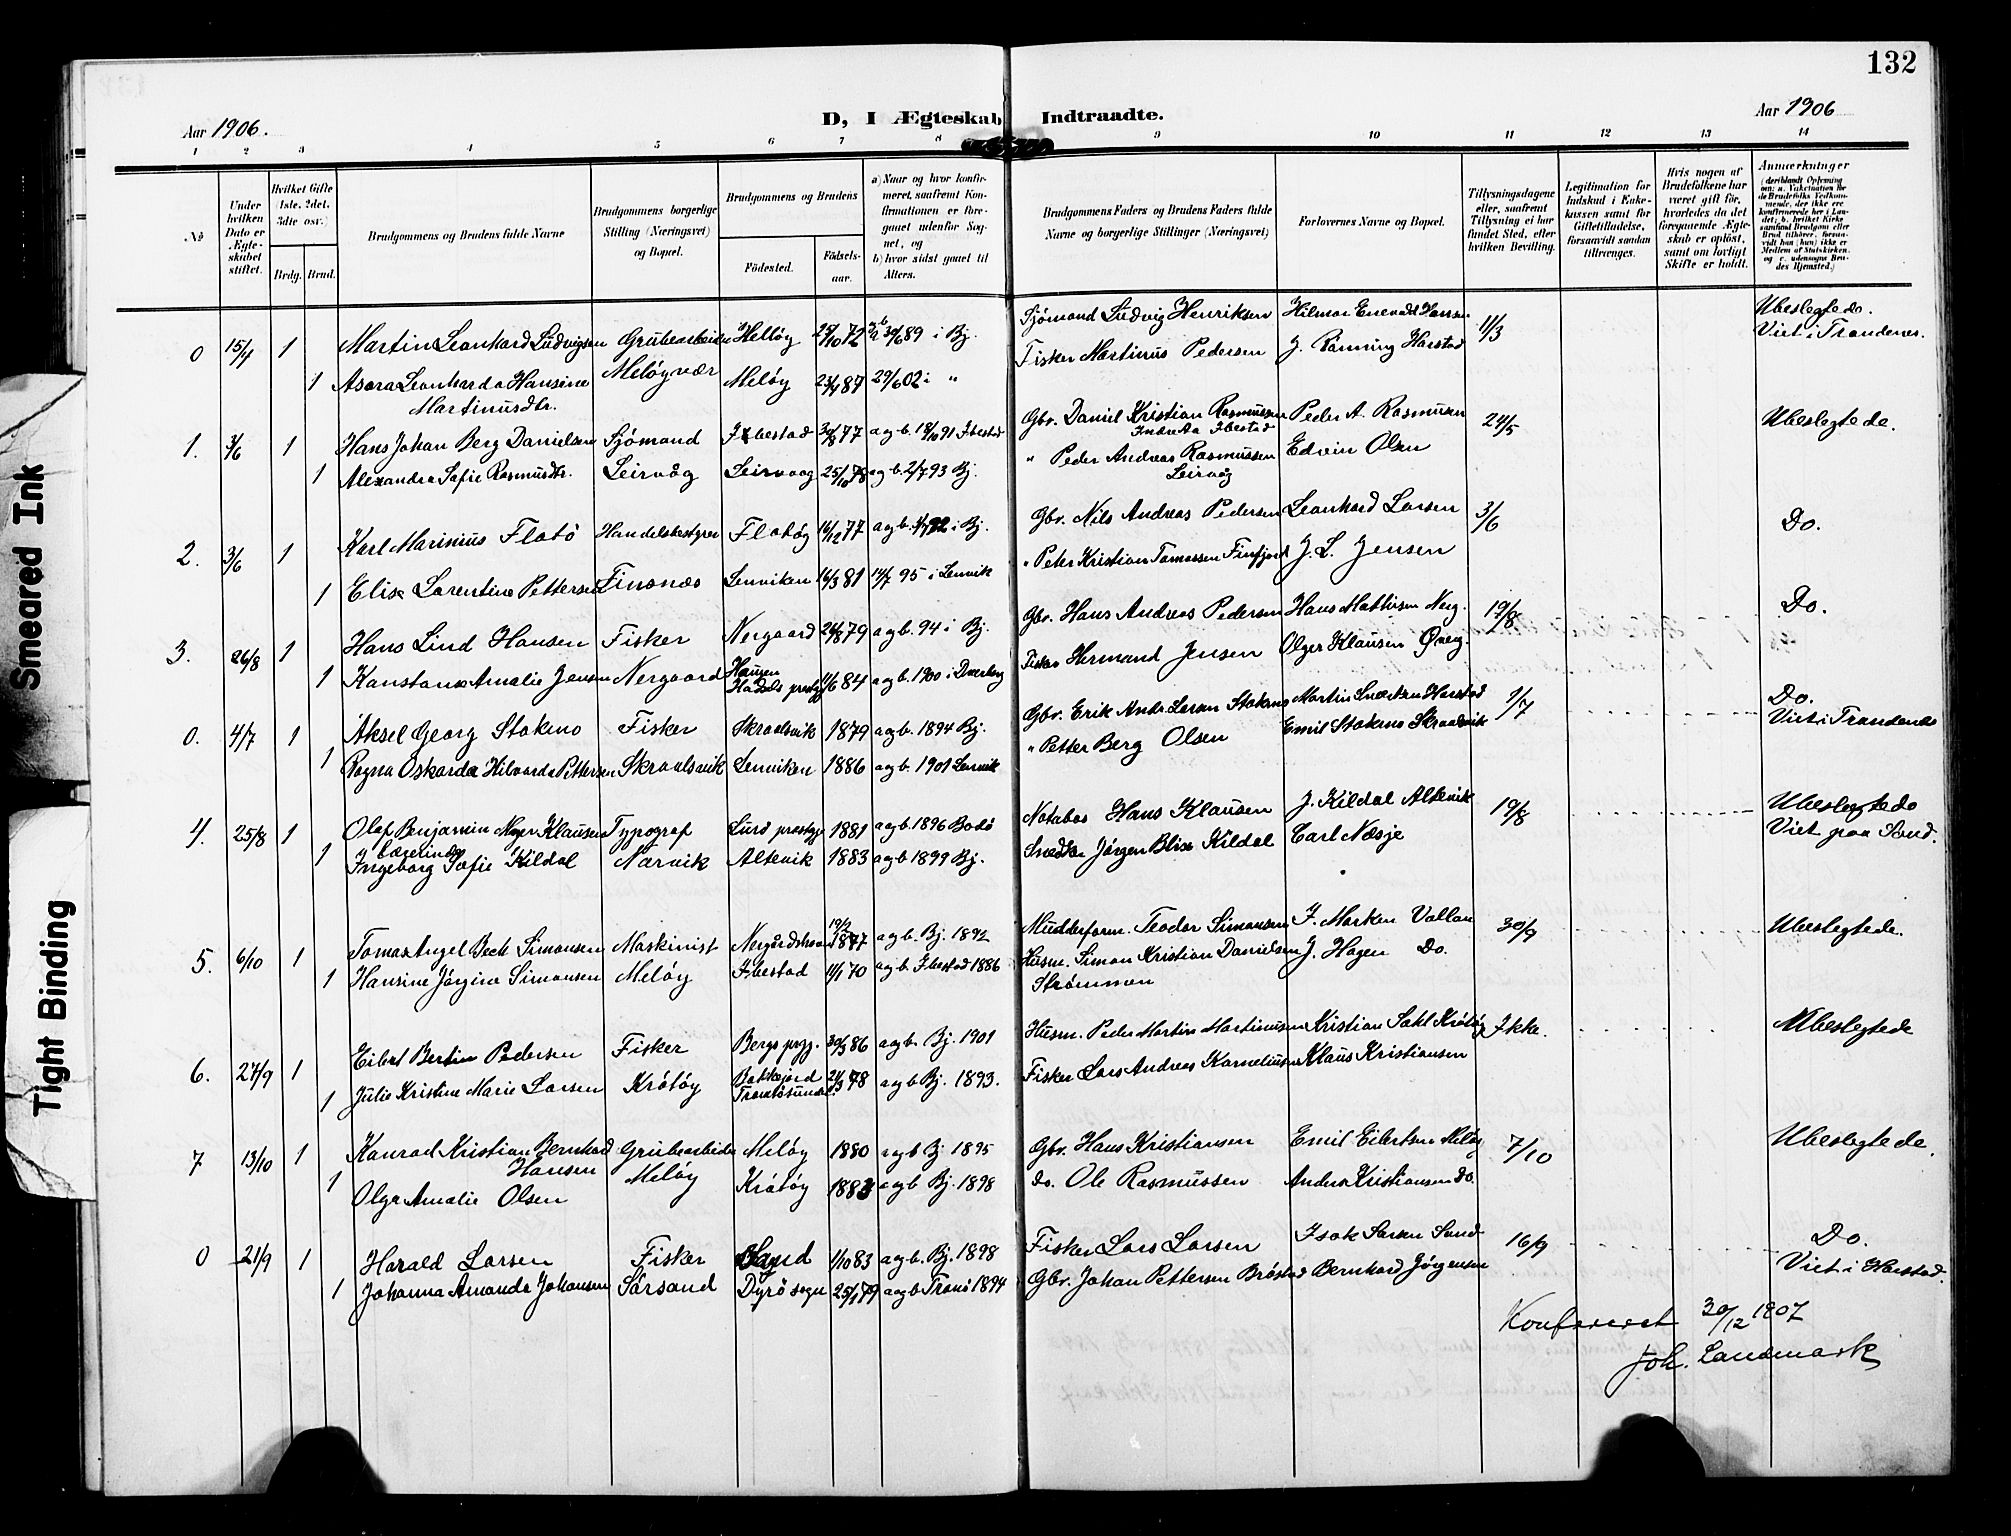 132
Aar 1906.
D, I Ægteskab Indtraadte.
Aar 1906
1 2 3 4 5 6 7 8 9 10 11 12 13 14
No
Under hvilken Dato er Ægteskabet stiftet.
Hvilket Gifte (1ste, 2det, 3die osv.)
Brdg. Brud.
Brudgommens og Brudens fulde Navne
Brudgommens borgerlige Stilling (Næringsvei) og Bopæl.
Brudgommens og Brudens
Födested. Födselsaar.
a) Naar og hvor konfirmeret, saafremt Konfirmationen er foregaaet udenfor Sognet, og
b) hvor sidst gaaet til Alters.
Brudgommens Faders og Brudens Faders fulde Navne og borgerlige Stillinger (Næringsvei)
Forlovernes Navne og Bopæl.
Tillysningsdagene eller, saafremt Tillysning ei har fundet Sted, efter hvilken Bevilling.
Legitimation for Indskud i Enkekassen samt for Giftetilladelse, forsaavidt saadan tiltrænges.
Hvis nogen af Brudefolkene har været gift før, hvorledes da det foregaaende Ægteskab er opløst, samt om lovligt Skifte er holdt.
Anmærkninger
0 15/4 1 Martin Leonhard Ludvigsen Grubearbeider Helløy 25/10 72 30/6 89 i Bj. Sjømand Ludvig Henriksen Hilmar Enevold Hansen 11/3 Ubeslegtede. Viet i Trondenes.
1 Asora Leonharda Hansine Martinusdtr. Meløyvær Meløy 23/4 87 29/6 02 i " Fisker Martinus Pedersen J. Rønning Harstad
1. 3/6 1 Hans Johan Berg Danielsen Sjömand Ibestad 30/8 77 a og b. 18/10 91 Ibestad Gbr. Daniel Kristian Rasmussen Ibestad Peder A. Rasmusen 24/5 Ubeslegtede.
1 Alexandra Sofie Rasmusdtr. Leirvåg Leirvaag 25/10 78 a og b. 2/7 93 Bj. " Peder Andreas Rasmussen Leirvåg Edvin Olsen
2. 3/6 1 Karl Marinius Flatö Handelsbestyrer Flatöy 16/12 77 a og b. 92 i Bj. Gbr. Nils Andreas Pedersen Leonhard Larsen 3/6 Do.
1 Elise Lorentine Pettersen Finsnes Lenviken 16/3 81 14/7 95 i Lenvik " Peter Kristian Tomassen Finfjord J. L. Jensen
3. 26/8 1 Hans Lind Hansen Fisker Nergaard 24/8 79 a og b. 94 i Bj. Gbr. Hans Andreas Pedersen Hans Mathisen Nerg. 19/8 Do.
1 Konstanse Amalie Jensen Nergaard Haugen Hadsels prestgj 4/6 84 a og b. 1900 i Dverberg Fisker Hermand Jensen Olger Klausen Øverg.
0. 4/7 1 Aksel Georg Stokmo Fisker Skrolsvik 1879 a og b. 1894 Bj. Gbr. Erik Andr. Larsen Stokmo Martin Harstad 1/7 Do. Viet i Trondenes
1 Ragna Oskarda Hilvarda Pettersen Skrolsvik Lenviken 1886 a og b. 1901 Lenvik " Petter Berg Olsen Emil Stokmo Skrolsvik
4. 25/8 1 Olaf Benjamin Meyer Klausen Typograf Lurö prestgj 1881 a og b. 1896 Bodö Hans Klausen J. Kildal Altevik 19/8 Ubeslegtede Viet paa Sand.
Lærerinde
1 Ingeborg Sofie Kildal Narvik Altevik 1883 a og b 1899 Bj. Jörgen Blix Kildal Carl Næsje
5. 6/10 1 Tomas Angel Beck Simonsen Maskinist 19/2 1877 a og b. Bj. 1892 Mudderform. Teodor Simonsen J. Marken Vollan 30/9 Ubeslegtede.
1 Hansine Jörgine Simonsen Melöy Ibestad 11/1 70 a og b. Ibestad 1886 Husm. Simon Kristian Danielsen Strømmen J. Hagen Do.
6. 27/9 1 Eilert Bertin Pedersen Fisker Bergs prgj. 30/3 86 a og b. Bj. 1901 Husm. Peder Martin Martinusen Kristian Krötöy Ikke. Ubeslegtede
1 Julie Kristine Marie Larsen Krötöy Tromsösundet 21/3 78 a og b Bj. 1893. Fisker Lars Andreas Korneliusen Klaus Kristiansen
7 13/10 1 Konrad Kristian Bernhard Hansen Grubearbeider Melöy 1880 a og b Bj 1895 Gbr. Hans Kristiansen Emil Eilertsen Melöy 7/10 Ubeslegtede.
1 Olga Amalie Olsen Melöy Krötöy 1883 a og b Bj. 1898 Do. Ole Rasmussen Anders Kristiansen Do.
0 21/9 1 Harald Larsen Fisker Sand 1/10 83 a og b. Bj. 1898 Fisker Lars Larsen Isak Larsen Sand 16/9 Do. Viet i Harstad.
1 Johanna Amanda Johansen Sörsand Dyrö sogn 25/1 79 a og b Tranö 1894 Gbr. Johan Pettersen Bröstad Bernhard Jörgensen
Konfereret 30/12 1907
Joh. Landmark
Smeared Ink
Tight Binding